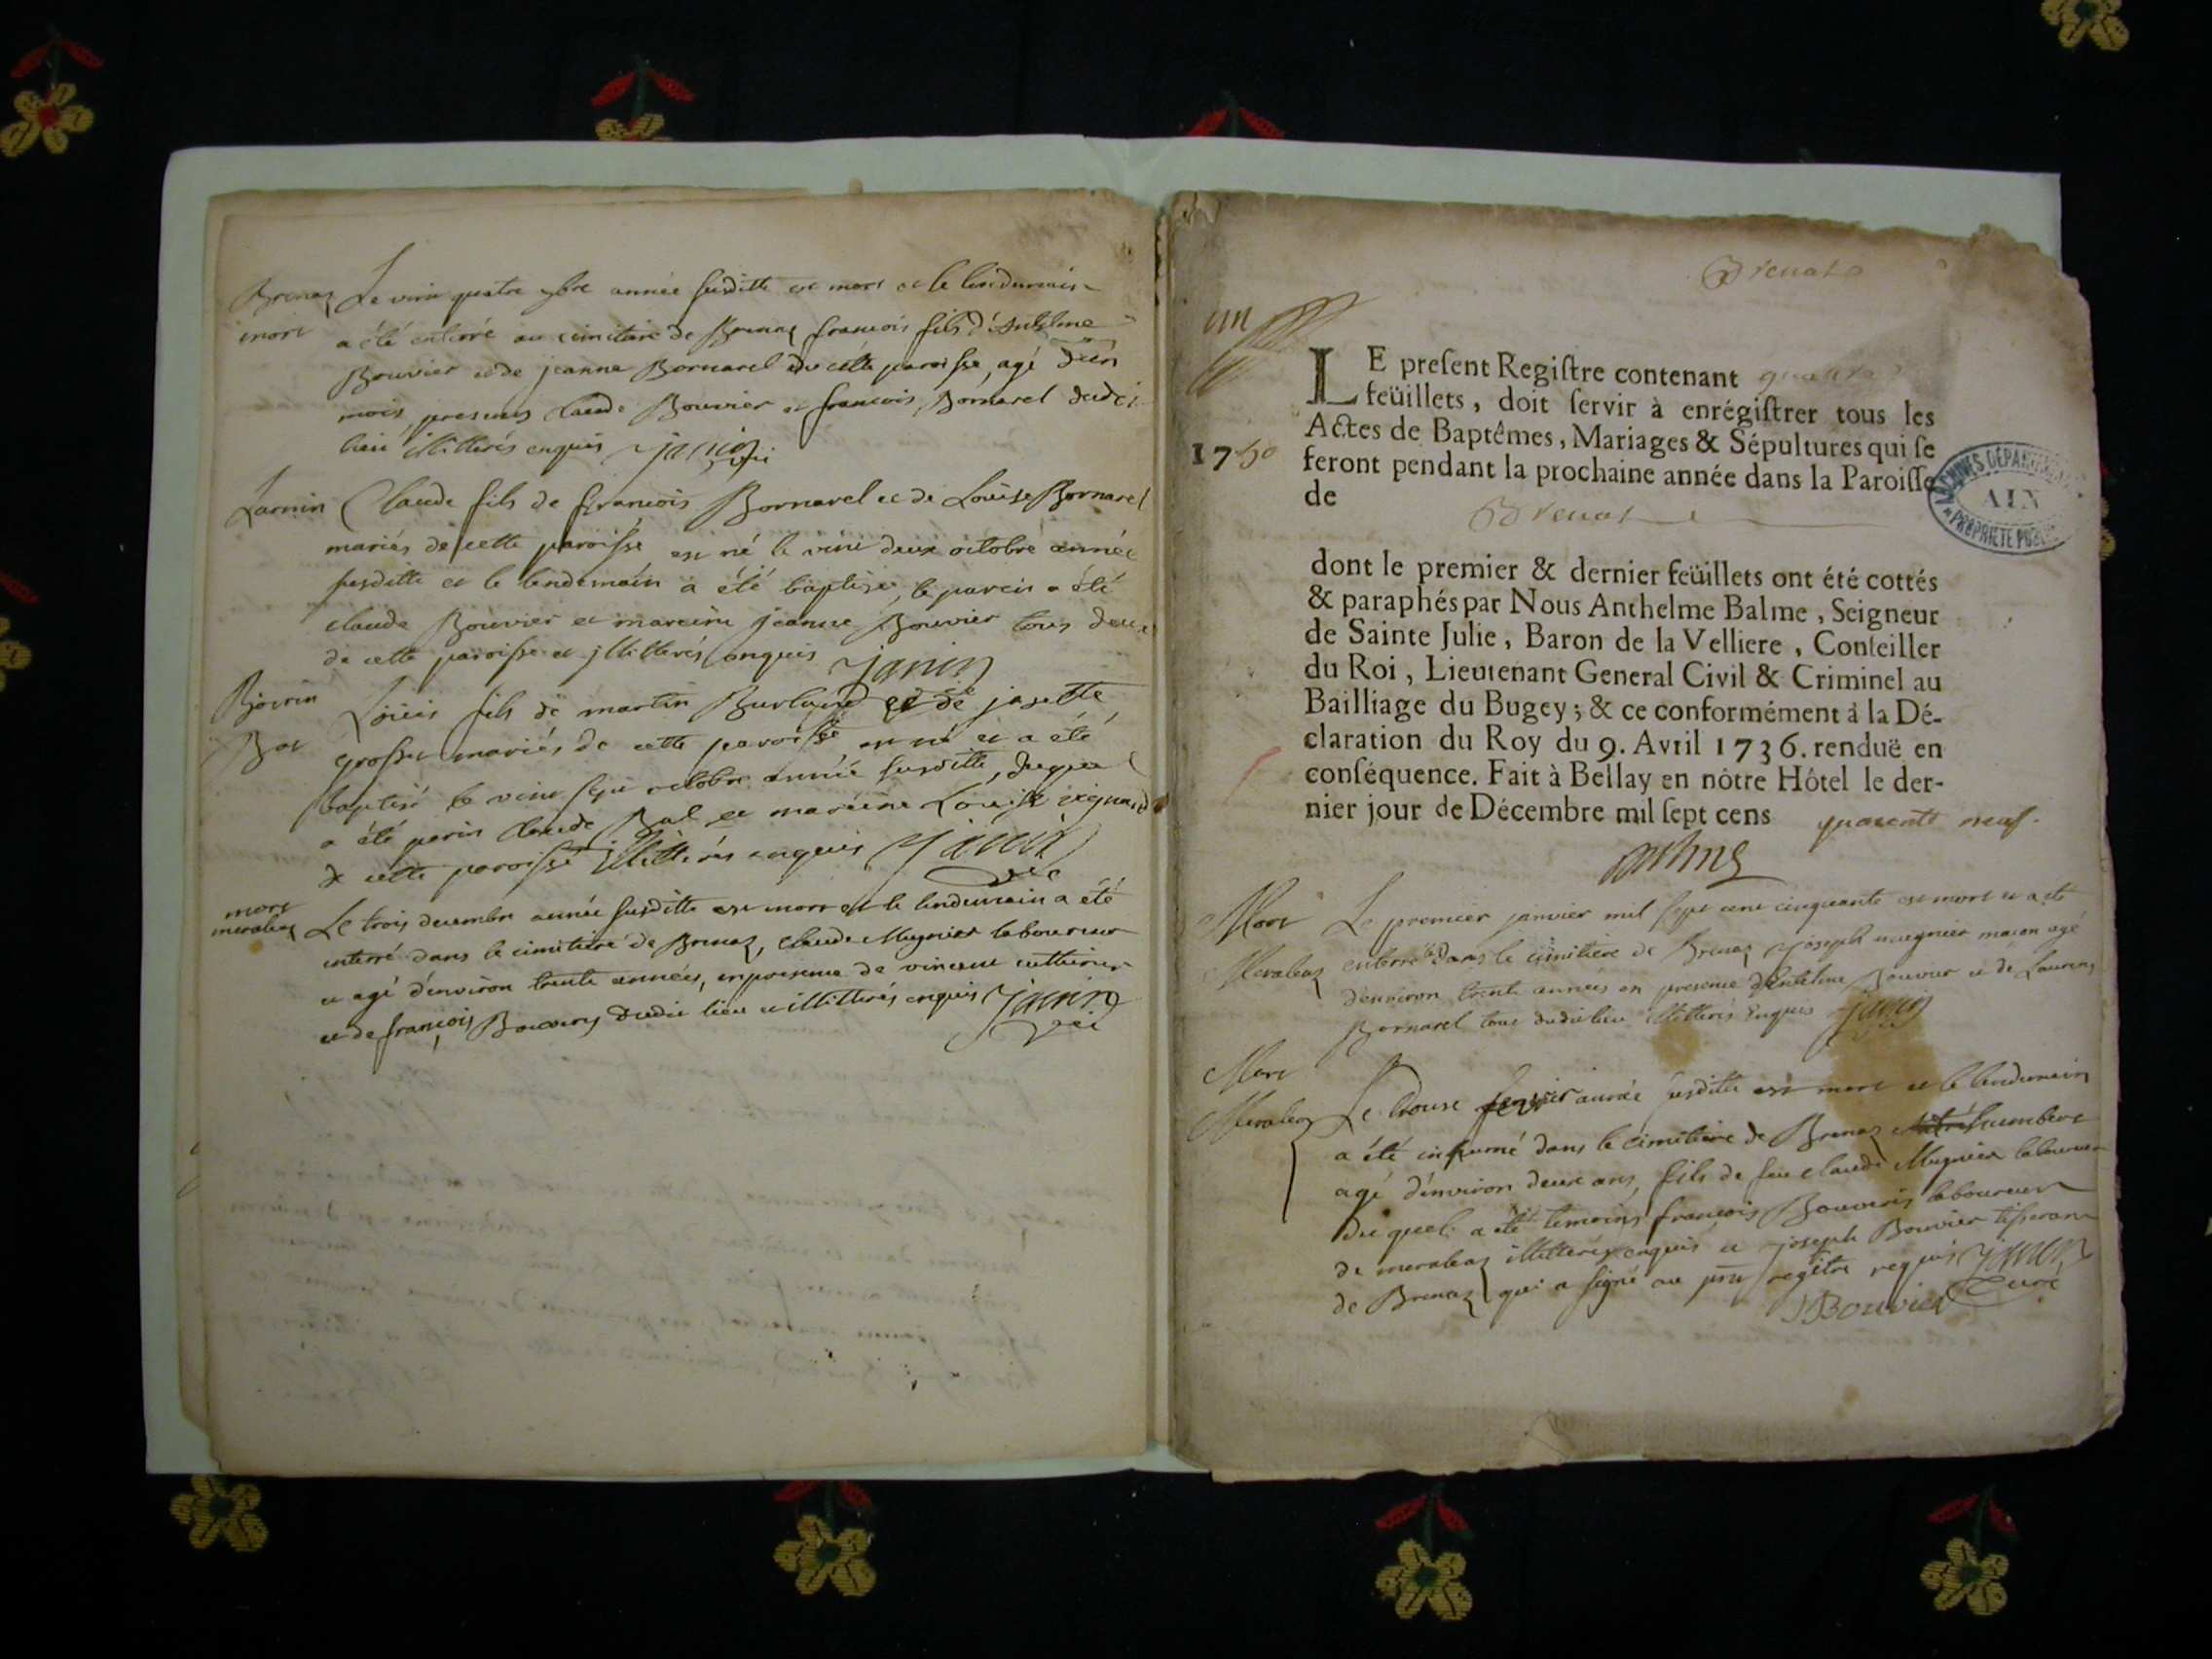 Brenaz Le vint quatre 7bre année susditte est mort et le lendemain
mort a été enterré au cimitiere de Brenaz francois fils d'Antelme
Bouvier et de jeanne Bornarel de cette paroisse, agé d'un
mois, presents claude Bouvier et francois Bornarel dudit
lieu illitterés enquis janin
Claude fils de francois Bornarel et de Louise Bornarel
mariés de cette paroisse est né le vint deux octobre année
susditte et le lendemain a été baptisé, le parein a été
claude Bouvier et mareine jeanne Bouvier tous deux
de cette paroisse et jllitterés enquis janin
Louis fils de martin Burland et de josette
grosset mariés de cette paroisse est né et a été
baptisé le vint sept octobre année susditte, duquel
a été parin claude Bal et mareine Louise
de cette paroisse illitterés enquis janin
mort
meraleaz Le trois decembre année susditte est mort et le lendemain a été
enterré dans le cimitiere de Brenaz, claude Mugnier laboureur
et agé d'environ trente années, en presence de vincent
et de francois Bouvery dudit lieu illitterés enquis janin
Brenaz
un
LE preſent Regiſtre contenant quatre
feüillets, doit ſervir à enrégiſtrer tous les
Actes de Baptêmes, Mariages & Sépultures qui ſe
1750 feront pendant la prochaine année dans la Paroiſſe
de
Brenaz
ARCHIVES DÉPARTEMENTALES
AIN
PROPRIÉTÉ PUBLIQUE
dont le premier & dernier feüillets ont été cottés
& paraphés par Nous Anthelme Balme, Seigneur
de Sainte Julie, Baron de la Velliere, Conſeiller
du Roi, Lieutenant General Civil & Criminel au
Bailliage du Bugey; & ce conformément à la Dé-
claration du Roy du 9. Avril 1736. renduë en
conſéquence. Fait à Bellay en nôtre Hôtel le der-
nier jour de Décembre mil ſept cens quarente neuf.
Mort Le premier janvier mil sept cent cinquante est mort et a eté
Meraleaz enterré dans le cimitiere de Brenaz joseph mugnier macon agé
d'environ trente années en presence d'Antelme Bouvier et de Laurens
Bornarel tous dudit lieu illitterés enquis janin
Mort
Meraleaz Le trouse année susditte est mort et le lendemain
a été inhumé dans le cimitiere de Brenaz humbert
agé d'environ deux ans, fils de feu claude Mugnier laboureur
du quel a été temoins francois Bouvery laboureur
de meraleaz illitterés enquis et joseph Bouvier tisseran
de Brenaz qui a signé au pnt regitre requis janin
J Bouvier Curé